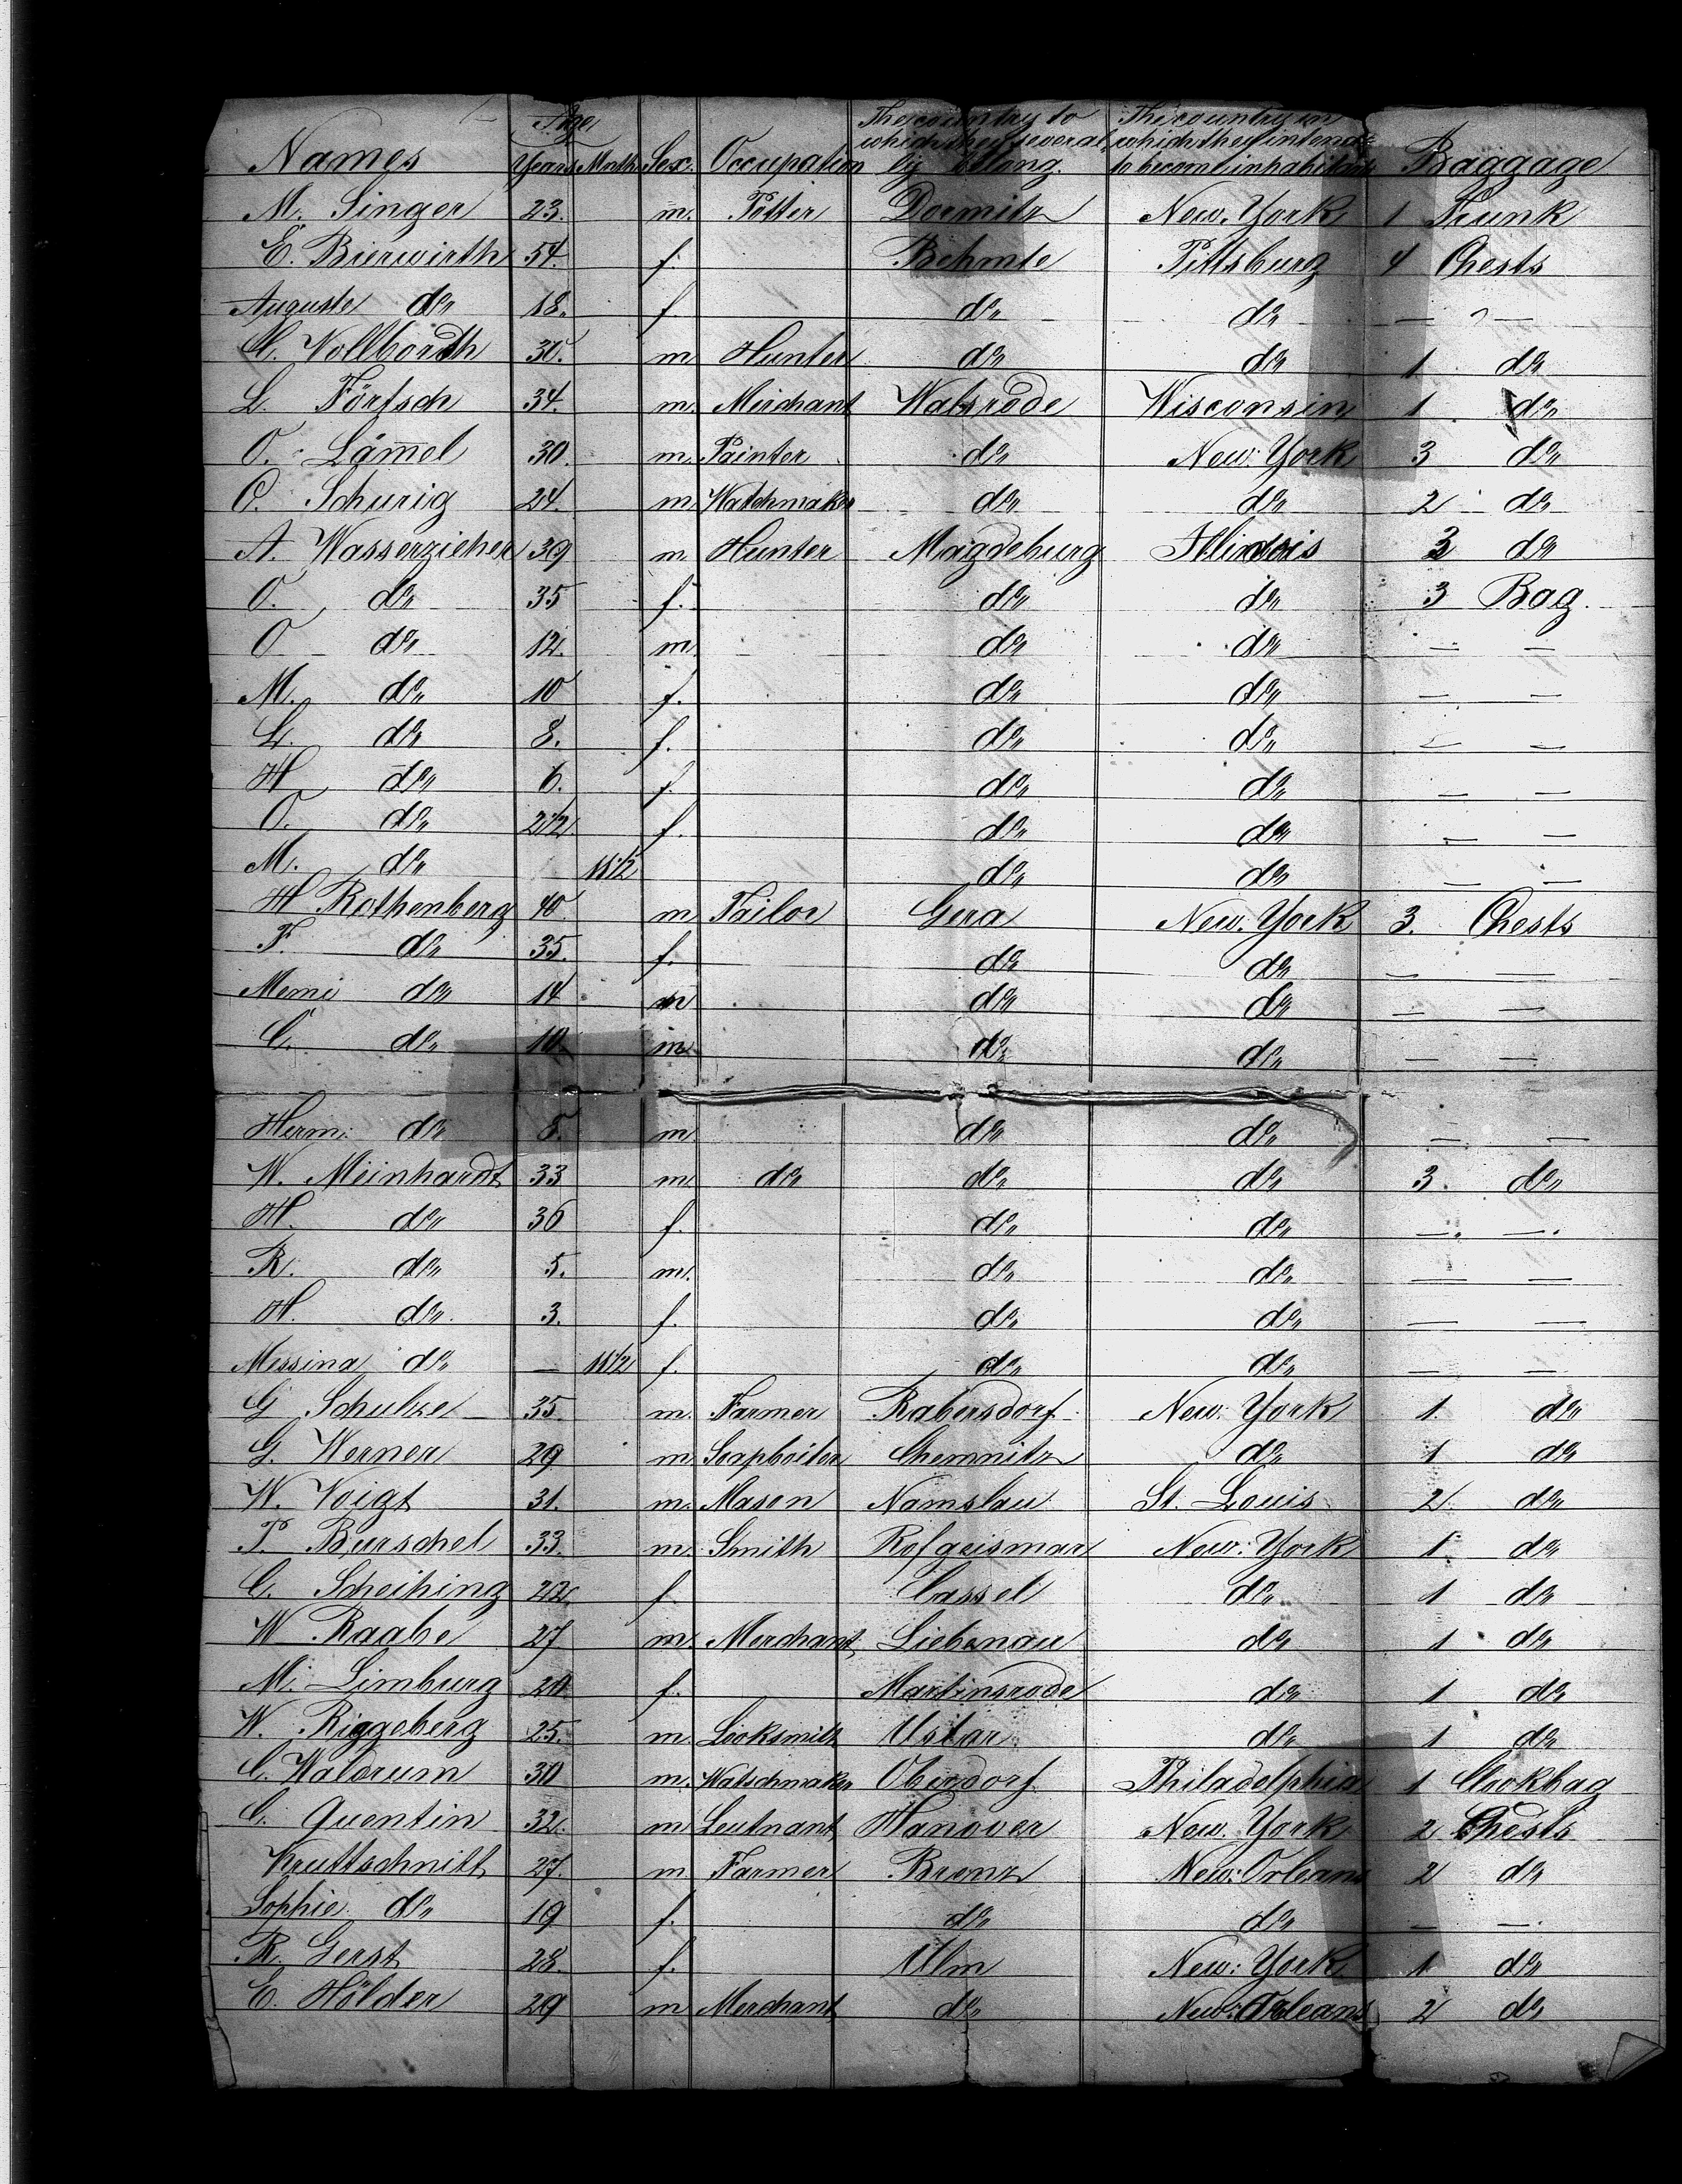 Age
The country to The country in
which they several which they intend
Names Years Month Sex. Occupation ly belong. to become inhabitants Baggage
M. Singer 23. m. Potter Dormitz New York 1 Trunk
E. Bierwirth 54. f. Behmte Pittsburg 4 Chests
Auguste do 18. f. do do — —
C. Vollbordth 30. m Hunter do do 1 do
L. Förtsch 34. m. Merchant Walsrode Wisconsin 1 do
O. Lam̅el 30. m. Painter do New York 3 do
O. Schurig 24. m. Watchmaker do do 2 do
A. Wasserzieher 39 m. Hunter Magdeburg Illinois 3 do
O. do 35 f. do do 3 Bag.
O do 12. m. do do — —
M. do 10 f. do do — —
L. do 8. f. do do — —
H do 6. f. do do — —
O. do 2 1/2 f. do do — —
M. do 11 1/2 do do — —
H Rothenberg 40 m Tailor Gera New York 3. Chests
F. do 35. f. do do — —
Memi do 14 m do do — —
C. do 10. m do do — —
Herm: do 8. m do do — —
W. Meinhardt 33 m. do do do 3. do
H. do 36 f. do do — —
R. do 5. m. do do — —
H. do 3. f. do do — —
Messina do — 11 1/2 f. do do — —
G Schulze 35 m. Farmer Rabersdorf New York 1. do
G. Werner 29 m. Soapboiler Chemnitz do 1 do
W. Voigt 31. m. Mason Namslau St. Louis 2 do
P. Burschel 33. m. Smith Rofgeismar New York 1 do
C. Scheihing 22. f. Cassel do 1 do
W Raabe 27 m. Merchant Liebenau do 1 do
M. Limburg 20 f. Martinsrode do 1 do
W. Riggeberg 25. m. Looksmith Uslar do 1 do
C. Walorum 30 m. Watschmaker Oberdorf Philadelphia 1 Clookbag
C. Quentin 32. m Leutnant Hanover New York 2 Chests
Kruttschnitt 27. m Farmer Brenz New Orleans 2 do
Sophie do 19 f. do do — —
R. Gerst 28. f. Ulm New York 1 do
E. Hölder 29 m Merchant do New Orleans 2 do